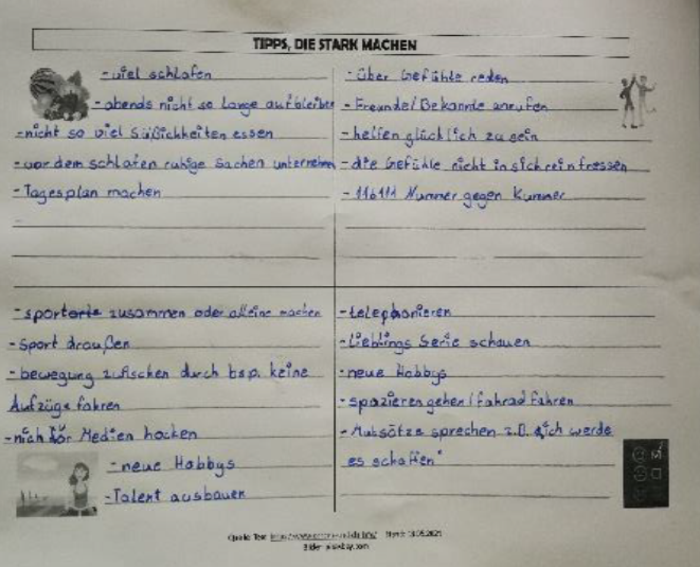 TIPPS, DIE STARK MACHEN
- viel schlafen
- abends nicht so lange aufbleiben
- nicht so viel Süßichkeiten essen
- vor dem schlafen ruhige Sachen unternehmen
- Tagesplan machen
- über Gefühle reden
- Freunde/Bekannte anrufen
- helfen glücklich zu sein
- die Gefühle nicht in sich rein fressen
- 116111 Nummer gegen Kummer
- sportarte zusammen oder alleine machen
- Sport draußen
- bewegung zwischen durch bsp. keine
Aufzüge fahren
- nich vor Medien hocken
- neue Hobbys
- Talent ausbauen
- telephonieren
- Lieblings Serie schauen
- neue Hobbys
- spazieren gehen / fahrad fahren
- Mutsätze sprechen z.B. "ich werde
es schaffen"
Quelle Text
Stand: 13.05.2021
Bilder: pixabay.com